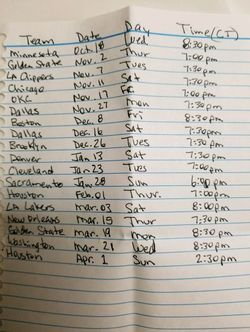 Team Date Day Time(CT)
Minnesota Oct.18 Wed 8:30pm
Golden State Nov. 2 Thur 7:00pm
LA Clippers Nov. 7 Tues 7:30pm
Chicago Nov. 11 Sat 7:30pm
OKC Nov. 17 Fri 7:00pm
Dallas Nov. 27 Mon 7:30pm
Boston Dec. 8 Fri 8:30pm
Dallas Dec. 16 Sat 7:30pm
Brooklyn Dec. 26 Tues 7:30pm
Denver Jan 13 Sat 7:30pm
Cleveland Jan 23 Tues 7:00pm
Sacramento Jan 28 Sun 6:00pm
Houston Feb.01 Thur. 7:00pm
LA Lakers Mar.03 Sat 8:00pm
New Orleans Mar. 15 Thur 7:30pm
Golden State Mar. 19 Mon 8:00pm
Washington Mar. 21 Wed 8:30pm
Houston Apr. 1 Sun 2:30pm